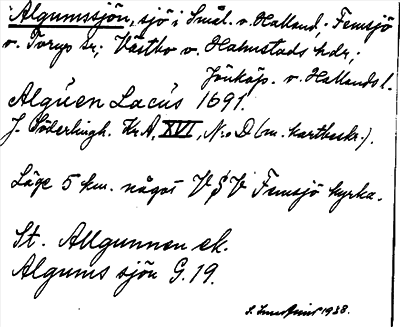 Algumssjön, sjö i Smål. o. Halland; Femsjö
o. Torup sr; Västbo o. Halmstads hdr;
Jönköp. o. Hallands l.
Algúen Lacús 1691.
J. Söderlingh. Kr A, XVI, N:o D (m. kartbeskr.).
Läge 5 km. något V § V Femsjö kyrka.
St. Allgunnen ek.
Algums sjön G. 19.
1938.